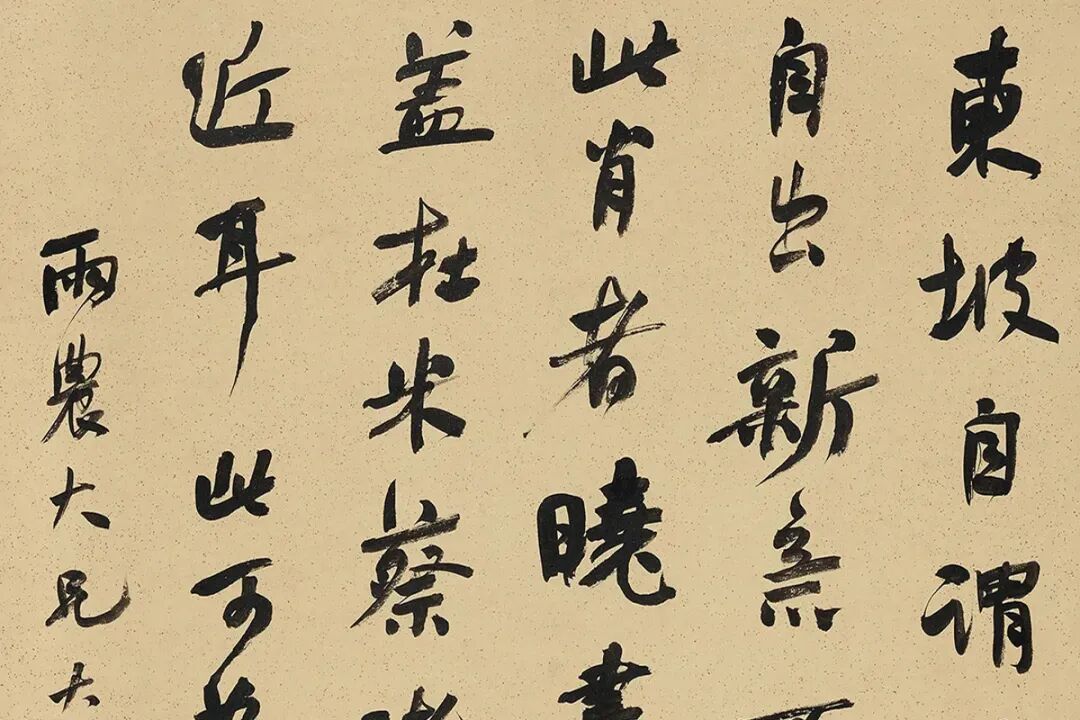 東坡自謂
自出新意
此肖者曉書
蓋杜米蔡
近耳此可
雨農大兄大